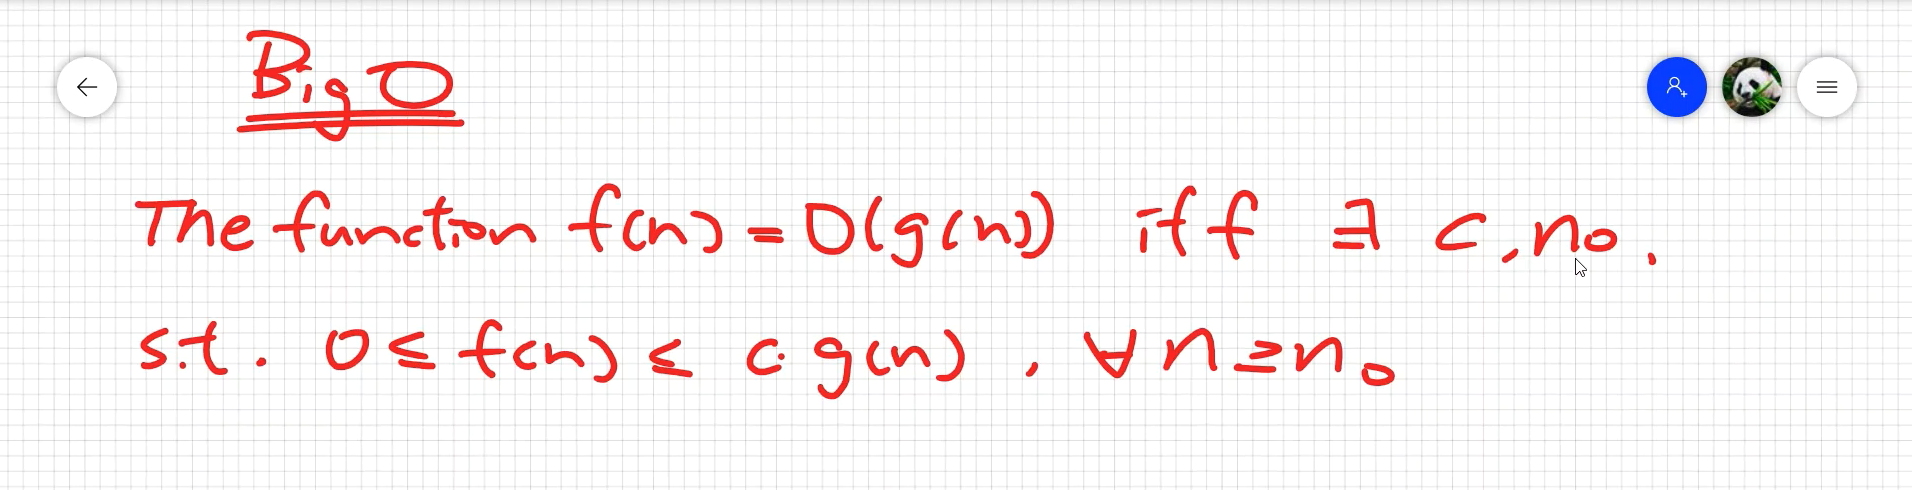 Big O
The function f(n) = O(g(n)) iff ∃ c, n₀.
s.t. 0 ≤ f(n) ≤ c·g(n), ∀ n ≥ n₀